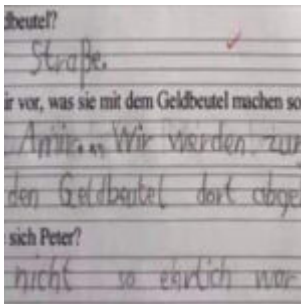 dbeutel?
Straße.
ir vor, was sie mit dem Geldbeutel machen so
Amir. „ Wir werden zur
den Geldbeutel dort abge
sich Peter?
nicht so ehrlich war